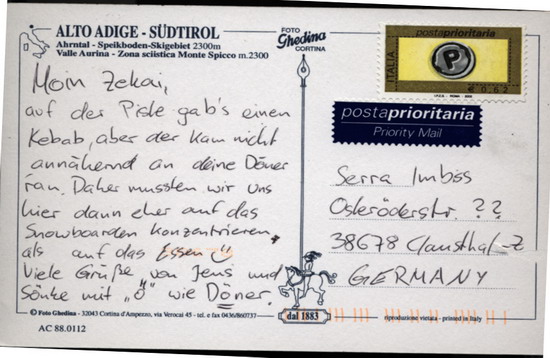 ALTO ADIGE - SÜDTIROL
Ahrntal - Speikboden-Skigebiet 2300m
Valle Aurina - Zona sciistica Monte Spicco m.2300
FOTO
Ghedina
CORTINA
Moin Zekai,
auf der Piste gab's einen
Kebab, aber der kam nicht
annähernd an deine Döner
ran. Daher mussten wir uns
hier dann eher auf das
Snowboarden konzentrieren,
als auf das Essen
Viele Grüße von Jens und
Sönke mit "Ö" wie Döner.
© Foto Ghedina - 32043 Cortina d'Ampezzo, via Verocai 45 - tel. e fax 0436/860737
AC 88.0112
dal 1883
riproduzione vietata - printed in Italy
postaprioritaria
ITALIA
P
I.P.Z.S. - ROMA
€ 0,62
postaprioritaria
Priority Mail
Serra Imbiss
Osteröderstr. ??
38678 Clausthal-Z
GERMANY